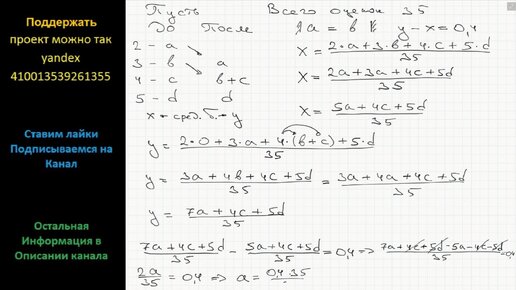 Поддержать
проект можно так
yandex
410013539261355
Ставим лайки
Подписываемся на
Канал
Остальная
Информация в
Описании канала
Пусть Всего оценок 35
До После a = в y - x = 0,4
2 - a
3 - в a
4 - c в+c
5 - d d
x = сред. б. = y
x = (2·a+3·в+4·c+5·d)/35
x = (2a+3a+4c+5d)/35
x = (5a+4c+5d)/35
y = (2·0+3·a+4·(в+c)+5·d)/35
y = (3a+4в+4c+5d)/35 = (3a+4a+4c+5d)/35
y = (7a+4c+5d)/35
(7a+4c+5d)/35 - (5a+4c+5d)/35 = 0,4 => (7a+4c+5d-5a-4c-5d)/35 = 0,4
2a/35 = 0,4 => a = 0,4·35